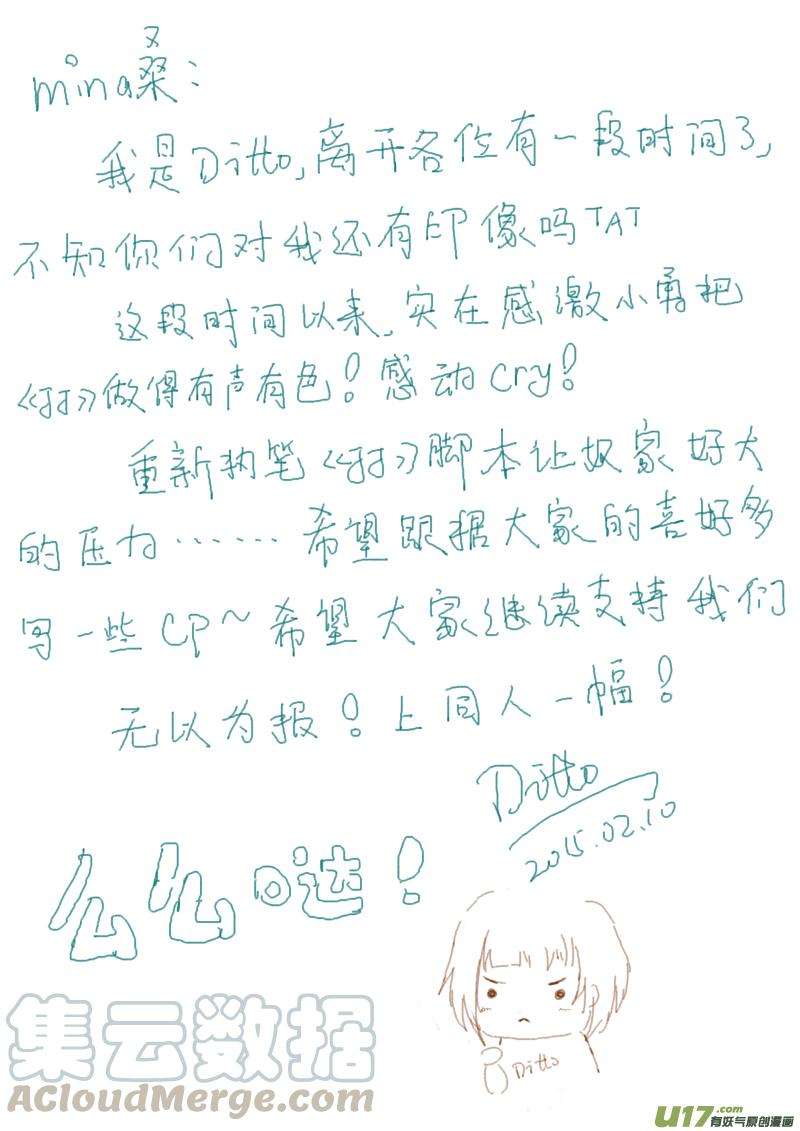 mina桑：
我是Ditto,离开各位有一段时间了,
不知你们对我还有印像吗TAT
这段时间以来,实在感激小勇把
《JJ》做得有声有色！感动cry！
重新执笔《JJ》脚本让奴家好大
的压力……希望跟据大家的喜好多
写一些CP~希望大家继续支持我们
无以为报！上同人一幅！
Ditto
2015.02.10
么么哒！
Ditto
集云数据
ACloudMerge.com
U17.com
有妖气原创漫画